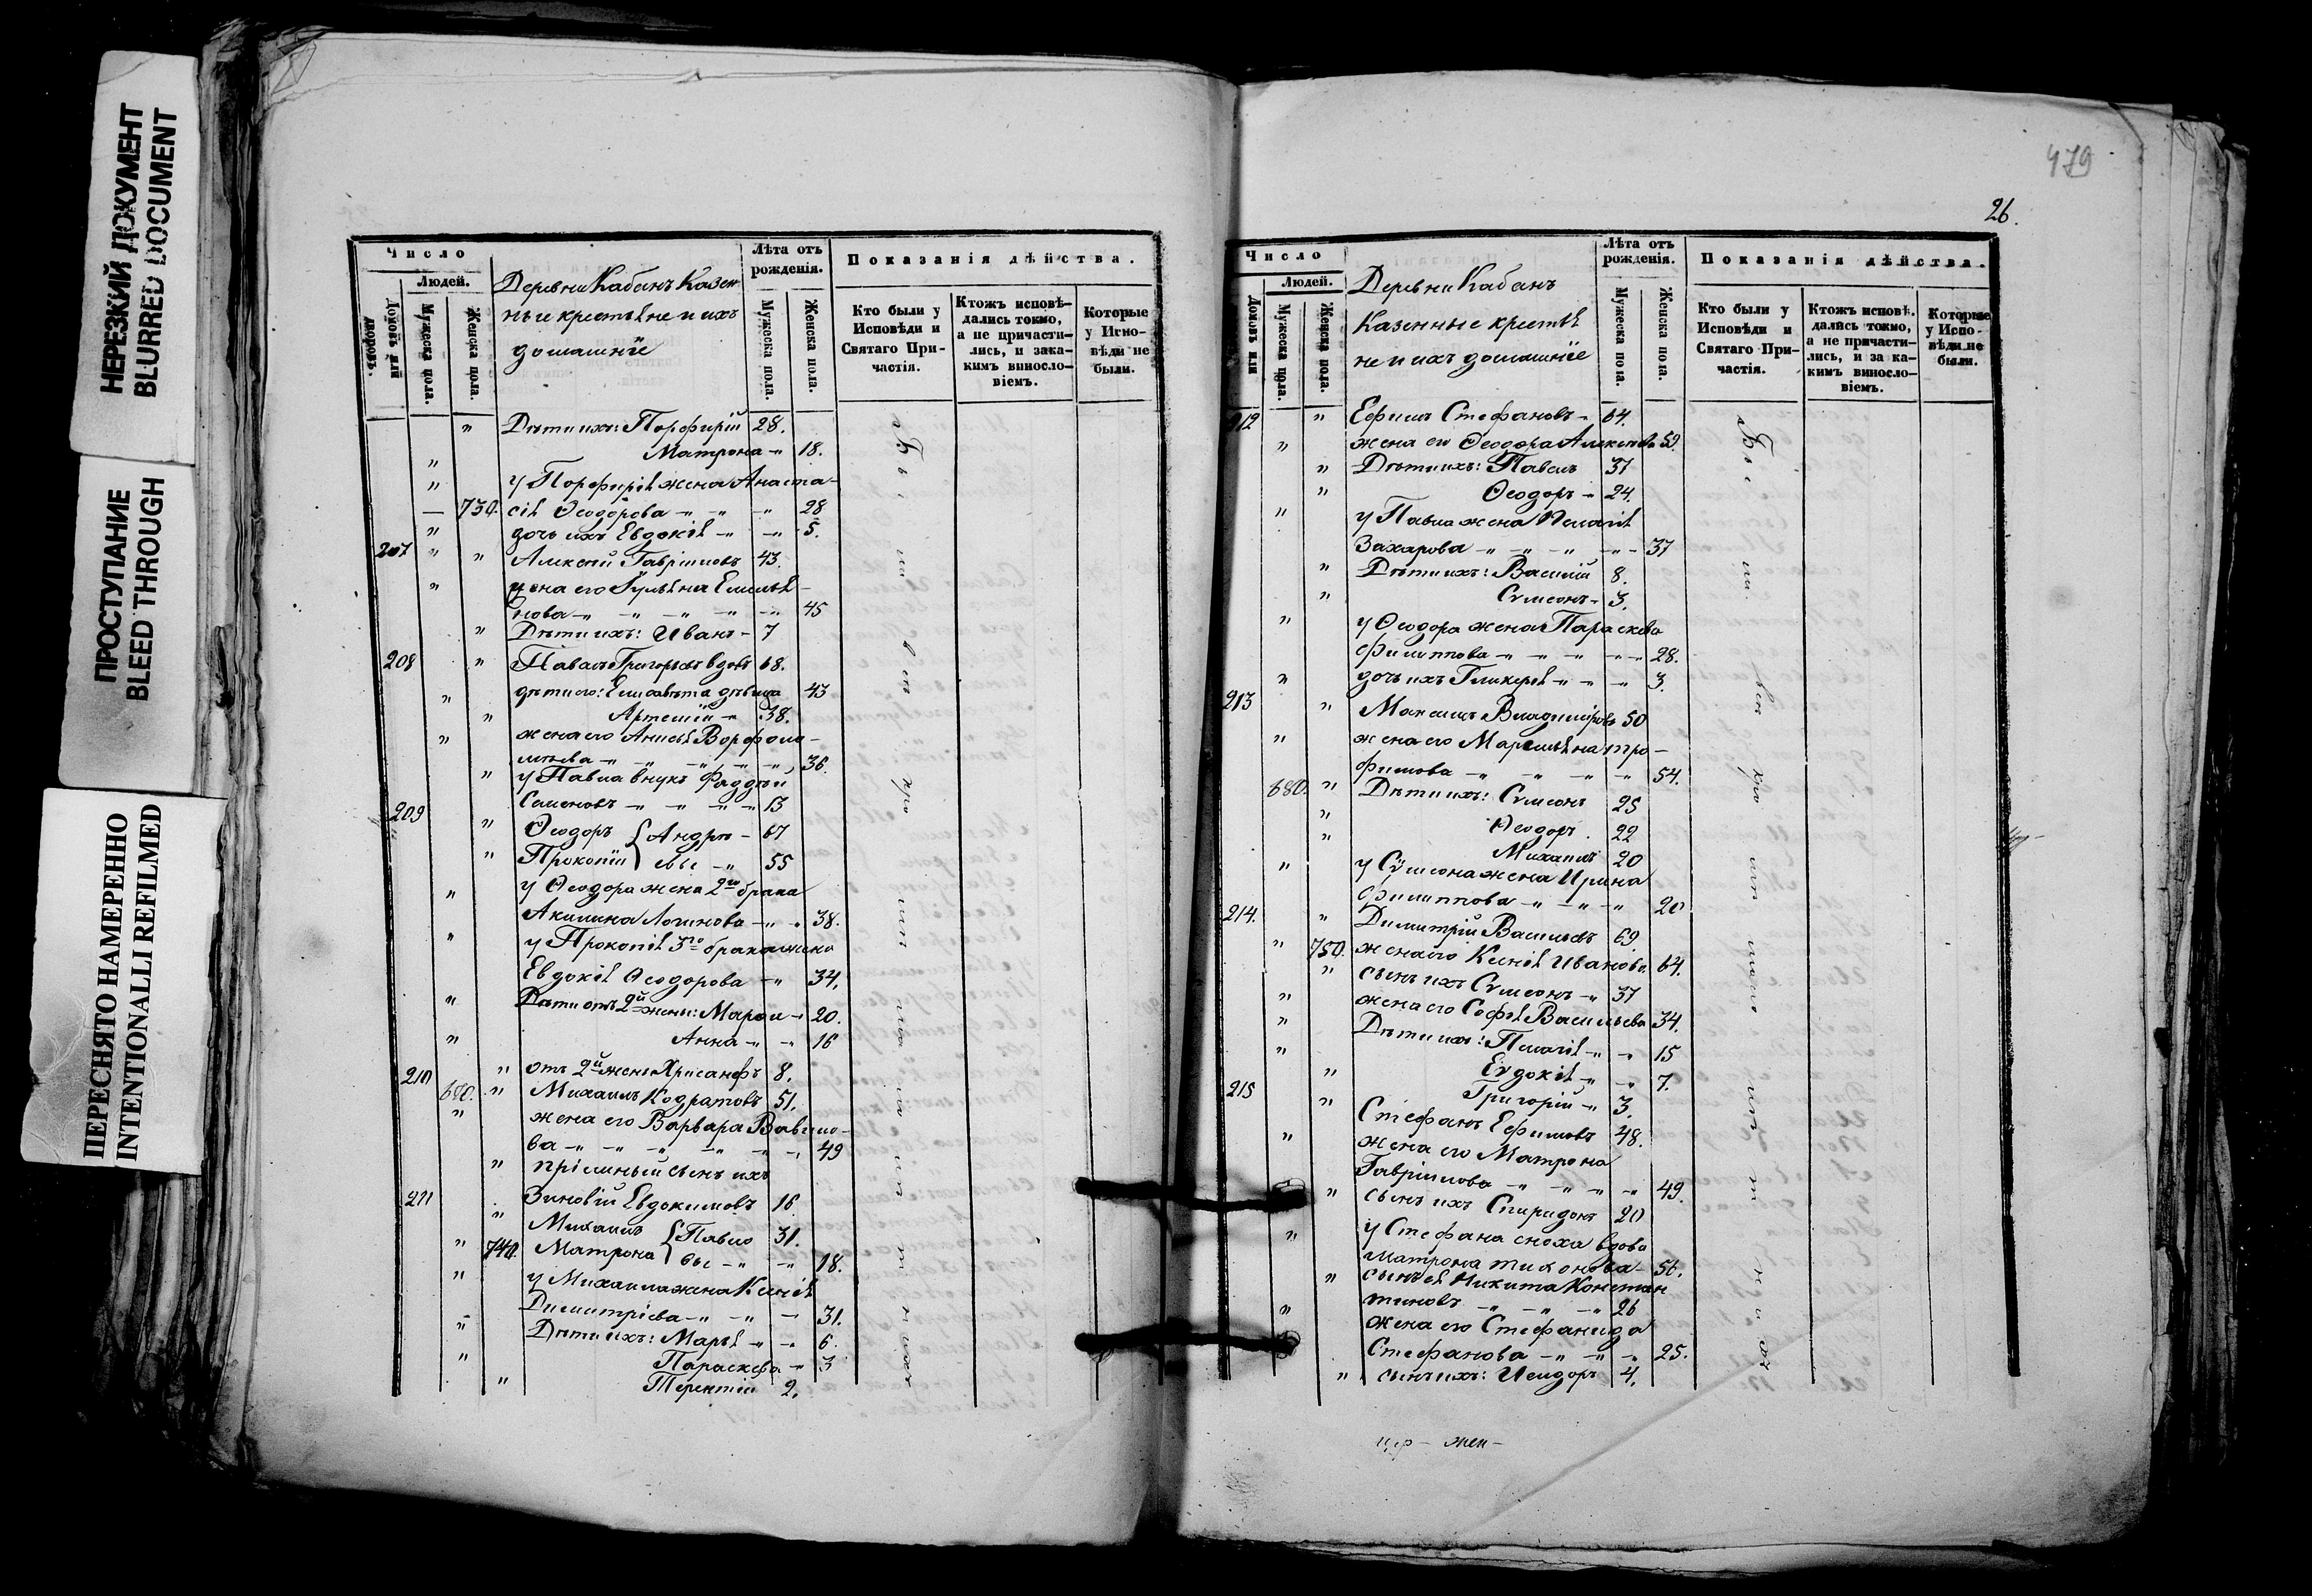 НЕРЕЗКИЙ ДОКУМЕНТ
BLURRED DOCUMENT
ПРОСТУПАНИЕ
BLEED THROUGH
ПЕРЕСНЯТО НАМЕРЕННО
INTENTIONALLI REFILMED
Число
Людей.
Домовъ или дворовъ.
Мужеска пола.
Женска пола.
Деревни Кабанъ Казен
ные крестьяне и ихъ
домашнїе
Лѣта отъ рожденія.
Мужеска пола.
Женска пола.
Показанія дѣйства.
Кто были у Исповѣди и Святаго Причастія.
Ктожъ исповѣдались токмо, а не причастились, и закакимъ винословіемъ.
Которые у Исповѣди не были.
" Дѣти ихъ: Порфирій 28.
" Матрона -"- 18.
" у Порфирія жена Анаста-
— 730. сія Ѳеодорова -"- -"- -"- 28
" дочь ихъ Евдокія -"- -"- 5.
207 " " Алексѣй Гавріиловъ 43.
" жена его Іульяна Емелья-
нова -"- -"- -"- -"- -"- 45
" Дѣти ихъ: Иванъ - 7
208 " Павелъ Григорьевъ вдовъ 68.
" дѣти его: Елисавета дѣвица 43
" Артемій -"- 38.
" жена его Анисья Ворфоло-
мѣева -"- " " " " 36.
" у Павла внукъ Фаддей
Семеновъ -"- " " -"- 13
209 " Ѳеодоръ { Андре- 67
" Прокопій } евы -"- 55
" у Ѳеодора жена 2го брака
Акилина Логинова -"- " 38.
" у Прокопія 3го брака жена
Евдокія Ѳеодорова -"- " 34.
" Дѣти отъ 2й жены: Марѳа -"- 20.
" Анна -"- -"- 16
" отъ 2й жены Хрисанфъ 8.
210 680. " Михаилъ Кодратовъ 51.
" жена его Варвара Вавило-
ва -"- -"- -"- -"- -"- -"- 49
" пріемный сынъ ихъ
Зиновій Евдокимовъ 16
211 " Михаилъ { Павло 31.
" 740. Матрона } вы -"- -"- 18.
" у Михаила жена Ксенія
Димитріева -"- -"- -"- 31.
" Дѣти ихъ: Марья -"- -"- 6.
" Параскева -"- 3
" Терентій 2.
479
26.
Число
Людей.
Домовъ или
Мужеска пола.
Женска пола.
Деревни Кабанъ
Казенные крестья
не и ихъ домашнїе
Лѣта отъ рожденія.
Мужеска пола.
Женска пола.
Показанія дѣйства.
Кто были у Исповѣди и Святаго Причастія.
Ктожъ исповѣ. дались токмо, а не причастились, и за какимъ винословіемъ.
Которые у Исповѣди не были.
212 " Ефимъ Стефановъ - 64.
" жена его Ѳеодора Алексѣева 59.
" Дѣти ихъ: Павелъ 37
" Ѳеодоръ - 24.
" у Павла жена Пелагія
Захарова -"- -"- -"- -"- 37
" Дѣти ихъ: Василій 8.
" Сѵмеонъ - 3.
" у Ѳеодора жена Параскева
Филиппова -"- -"- -"- -"- 28.
" дочь ихъ Гликерія -"- " -"- 3.
213 " Максимъ Владиміровъ 50
" жена его Маремьяна Тро-
фимова -"- -"- -"- -"- 54.
680. " Дѣти ихъ: Сѵмеонъ 25
" Ѳеодоръ. 22
" Михаилъ 20
" у Сѵмеона жена Ирина
Филиппова -"- -"- -"- 20
214. " Димитрій Васильевъ 69
" 750. жена его Ксенія Иванова 64.
" сынъ ихъ Сѵмеонъ -"- 37
" жена его Софья Васильева 34.
" Дѣти ихъ: Пелагія -"- -"- 15
" Евдокія -"- -"- 7.
" Григорій -"- 3.
215 " Стефанъ Ефимовъ 48.
" жена его Матрона
Гавріилова -"- -"- -"- -"- 49.
" сынъ ихъ Спиридонъ 20
" у Стефана сноха вдова
Матрона Тихонова - 56.
" сынъ ея Никита Констан
тиновъ -"- -"- -"- 26
" жена его Стефанида
Стефанова -"- -"- -"- 25.
" сынъ ихъ: Исидоръ 4.